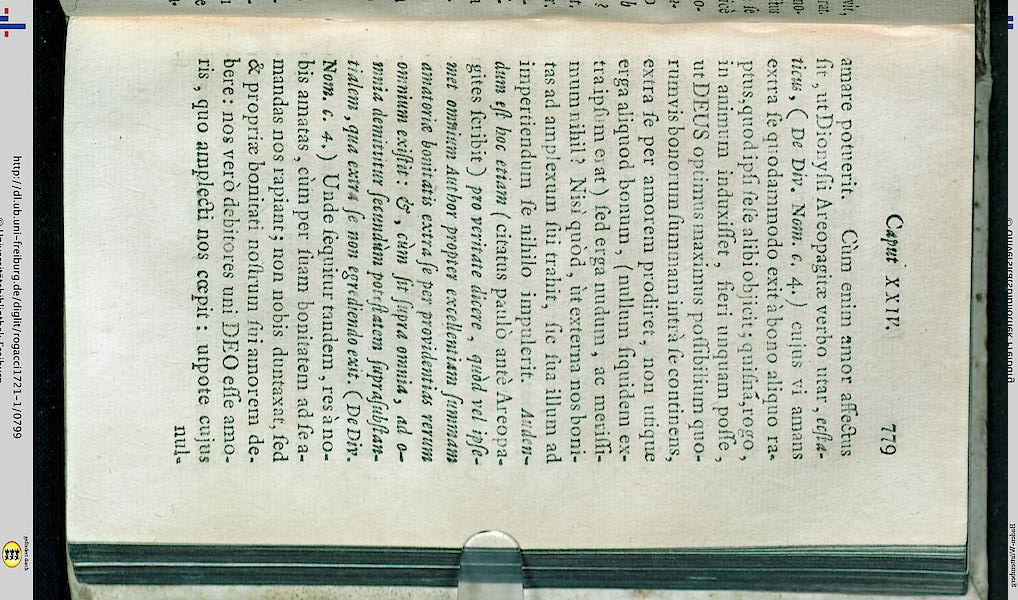 Caput XXIV. 779
amare potuerit. Cùm enim amor affectus
ſit, ut Dionyſii Areopagitæ verbo utar, ecſta-
ticus, ( De Div. Nom. c. 4. ) cujus vi amans
extra ſe quodammodo exit à bono aliquo ra-
ptus, quod ipſi ſeſe alibi objicit; quiſnã, rogo,
in animum induxiſſet, fieri unquam poſſe,
ut DEUS optimus maximus poſſibilium quo-
rumvis bonorum ſummam intrà ſe continens,
extra ſe per amorem prodiret, non utique
erga aliquod bonum, (nullum ſiquidem ex-
tra ipſum erat) ſed erga nudum, ac meriſſi-
mum nihil? Niſi quòd, ut externa nos boni-
tas ad amplexum ſui trahit, ſic ſua illum ad
impertiendum ſe nihilo impulerit. Auden-
dum eſt hoc etiam (citatus paulò antè Areopa-
gites ſcribit) pro veritate dicere, quòd vel ipſe-
met omnium Author propter excellentiam ſummam
amatoriæ bonitatis extra ſe per providentias rerum
omnium exiſtit: &, cùm ſit ſupra omnia, ad o-
mnia demittitur ſecundùm poteſtatem ſupraſubſtan-
tialem, qua extra ſe non egrediendo exit. (De Div.
Nom. c. 4.) Unde ſequitur tandem, res à no-
bis amatas, cùm per ſuam bonitatem ad ſe a-
mandas nos rapiant; non nobis duntaxat, ſed
& propriæ bonitati noſtrum ſui amorem de-
bere: nos verò debitores uni DEO eſſe amo-
ris, quo amplecti nos cœpit: utpote cujus
nul-
http://dl.ub.uni-freiburg.de/diglit/rogacci1721-1/0799
© Universitätsbibliothek Freiburg
gefördert durch